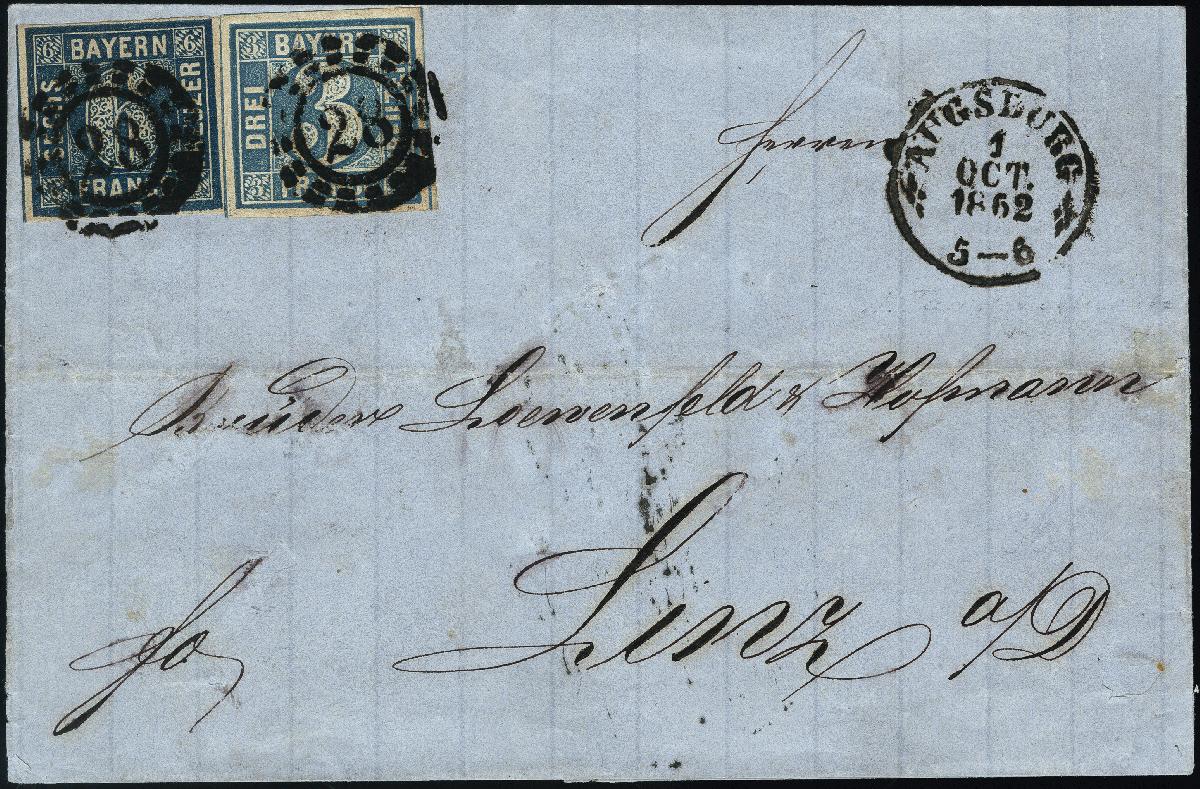 6 BAYERN 6
SECHS
KREUZER
FRANCO
28
3 BAYERN
DREI
3
3 FRANCO
28
AUGSBURG
1
OCT.
1862
5—6
Herren
Brüder Loewenfeld & Hofmann
Linz a/D
fo